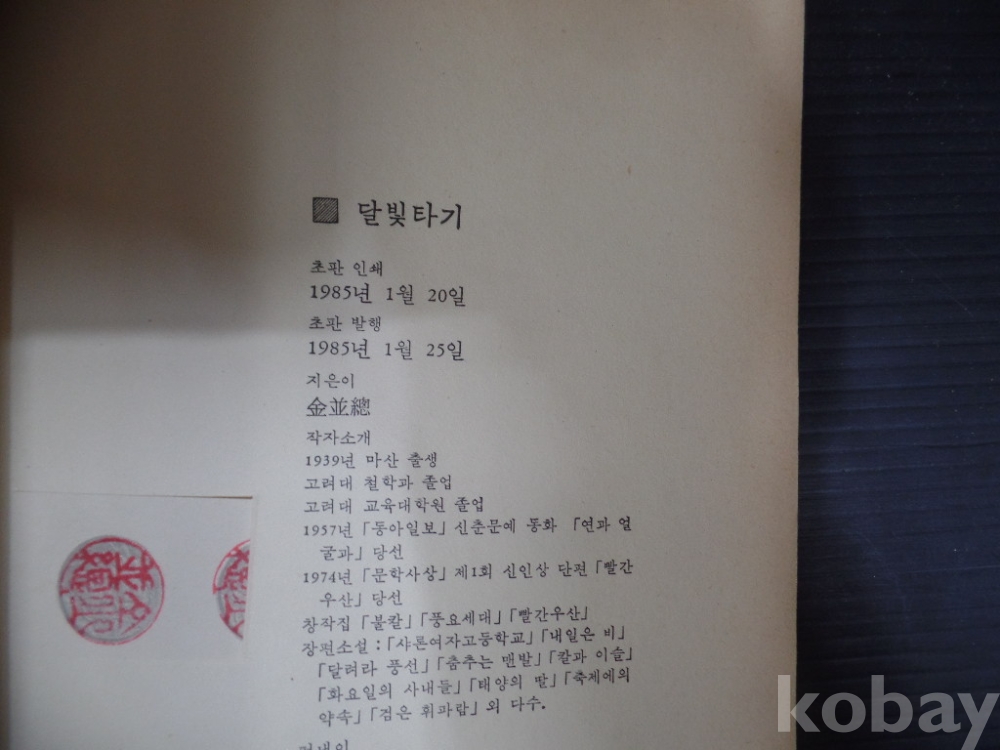 달빛타기
초판 인쇄
1985년 1월 20일
초판 발행
1985년 1월 25일
지은이
金並總
작자소개
1939년 마산 출생
고려대 철학과 졸업
고려대 교육대학원 졸업
1957년 「동아일보」 신춘문예 동화 「연과 얼
굴과」 당선
1974년 「문학사상」 제1회 신인상 단편 「빨간
우산」 당선
창작집 「불칼」 「풍요세대」 「빨간우산」
장편소설 : 「샤론여자고등학교」 「내일은 비」
「달려라 풍선」 「춤추는 맨발」 「칼과 이슬」
「화요일의 사내들」 「태양의 딸」 「축제에의
약속」 「검은 휘파람」 외 다수.
kobay